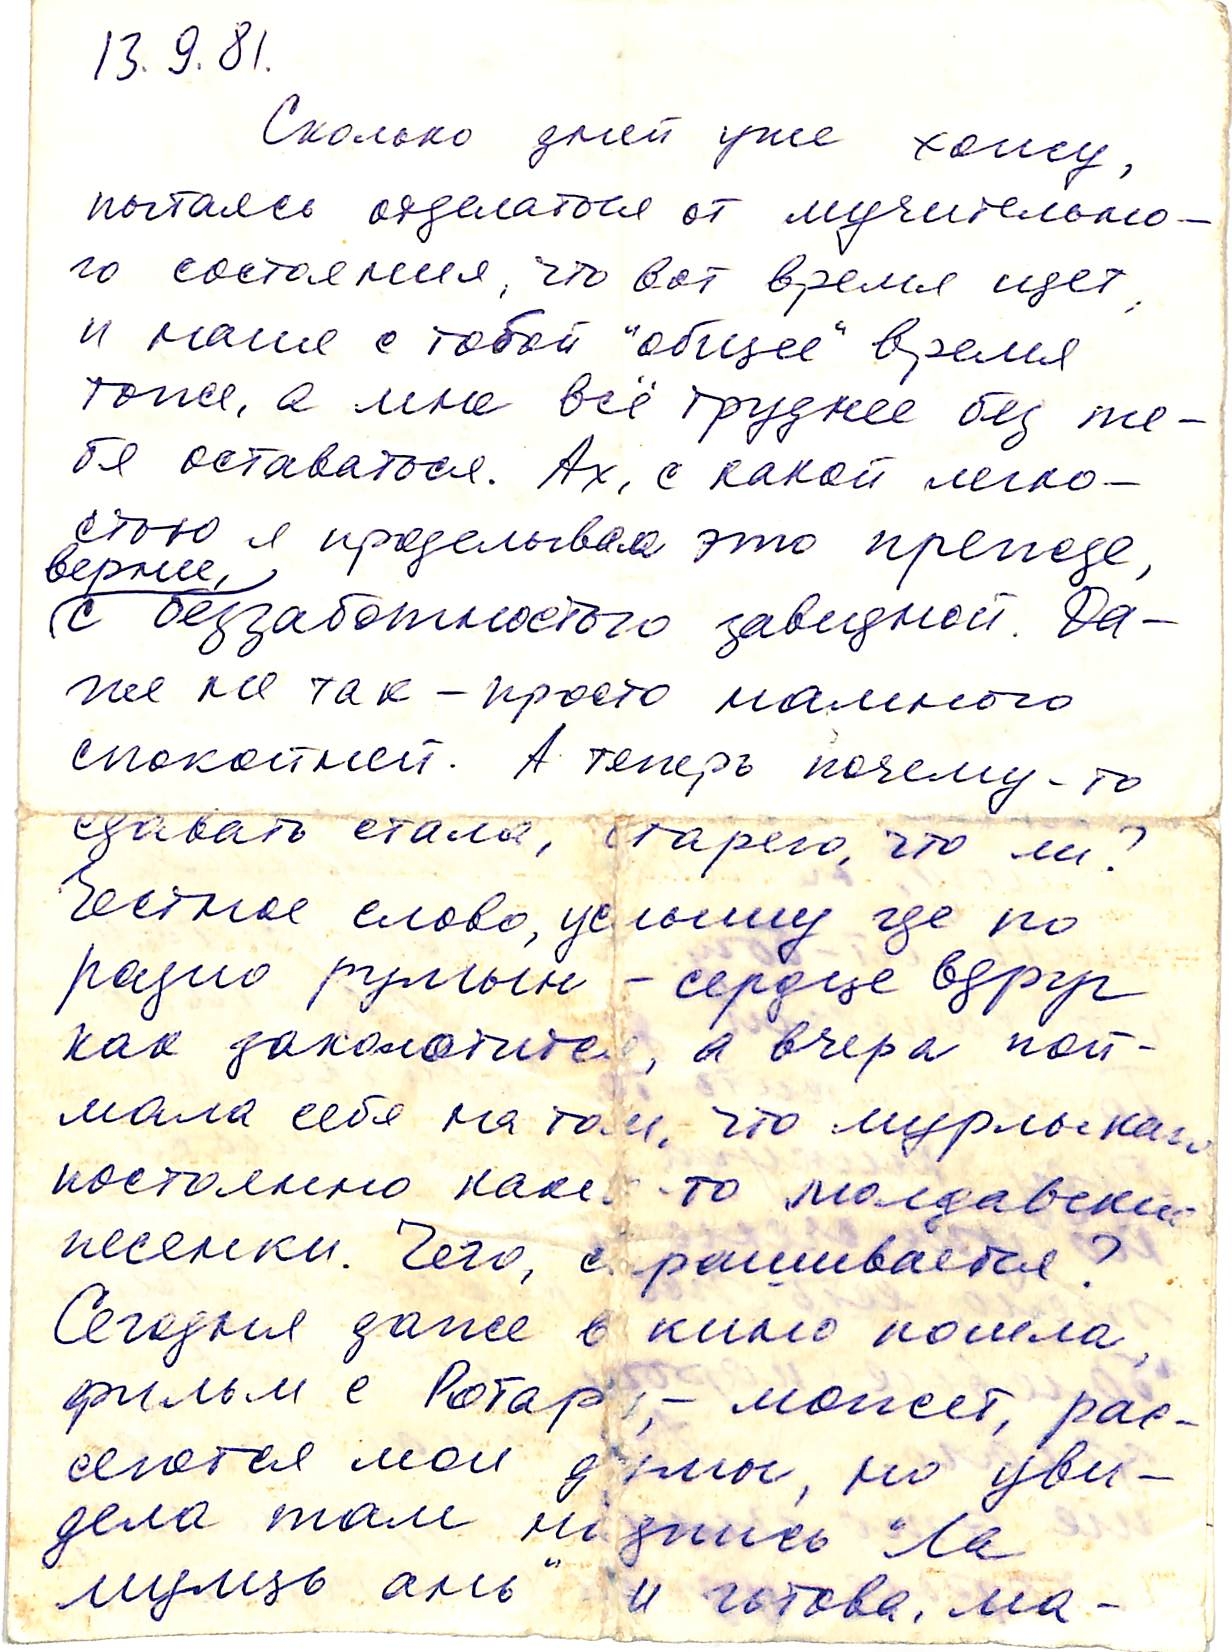 13.9.81.
Сколько дней уже хожу,
пытаясь отделаться от мучительно-
го состояния, что вот время идет,
и наше с тобой "общее" время
тоже, а мне всё труднее без те-
бя оставаться. Ах, с какой легко-
стью я проделывала это прежде,
верней,
с беззаботностью завидной. Да-
же не так - просто намного
спокойней. А теперь почему-то
сдавать стала, старею, что ли?
Честное слово, услышу где по
радио румын - сердце вдруг
как заколотится, а вчера пой-
мала себя на том, что мурлыкаю
постоянно какие-то молдавские
песенки. Чего, спрашивается?
Сегодня даже в кино пошла,
фильм с Ротару, - может, рас-
сеются мои думы, но уви-
дела там надпись "Ла
мулць ань" и готова, ма-